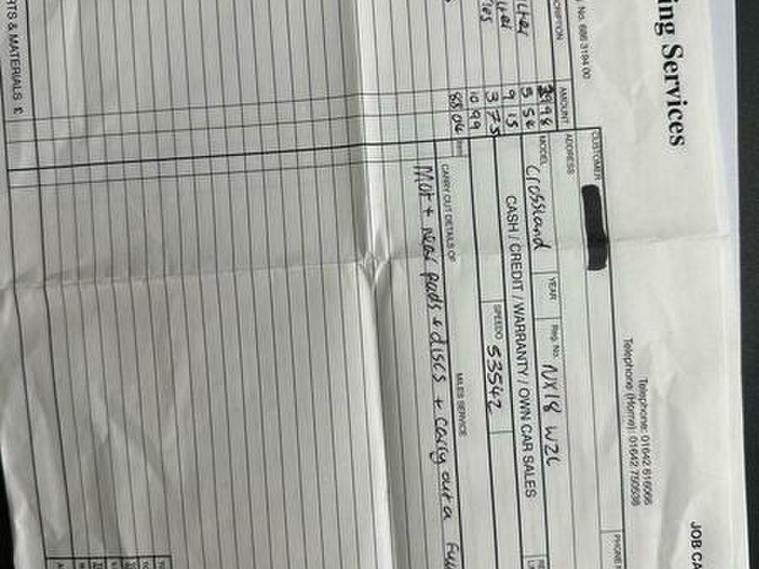 ing Services
JOB CA
Telephone: 01642 616066
Telephone (Home): 01642 750538
No. 686 3194 00
CUSTOMER
PHONE N
ADDRESS
MODEL Crossland YEAR Reg. No. NX18 WZL
CASH / CREDIT / WARRANTY / OWN CAR SALES
SPEEDO 53542
CARRY OUT DETAILS OF MILES SERVICE
Mot + rear pads + discs + carry out a Full
AMOUNT
5 56
9 15
3 75
10 99
88 06
RTS & MATERIALS £